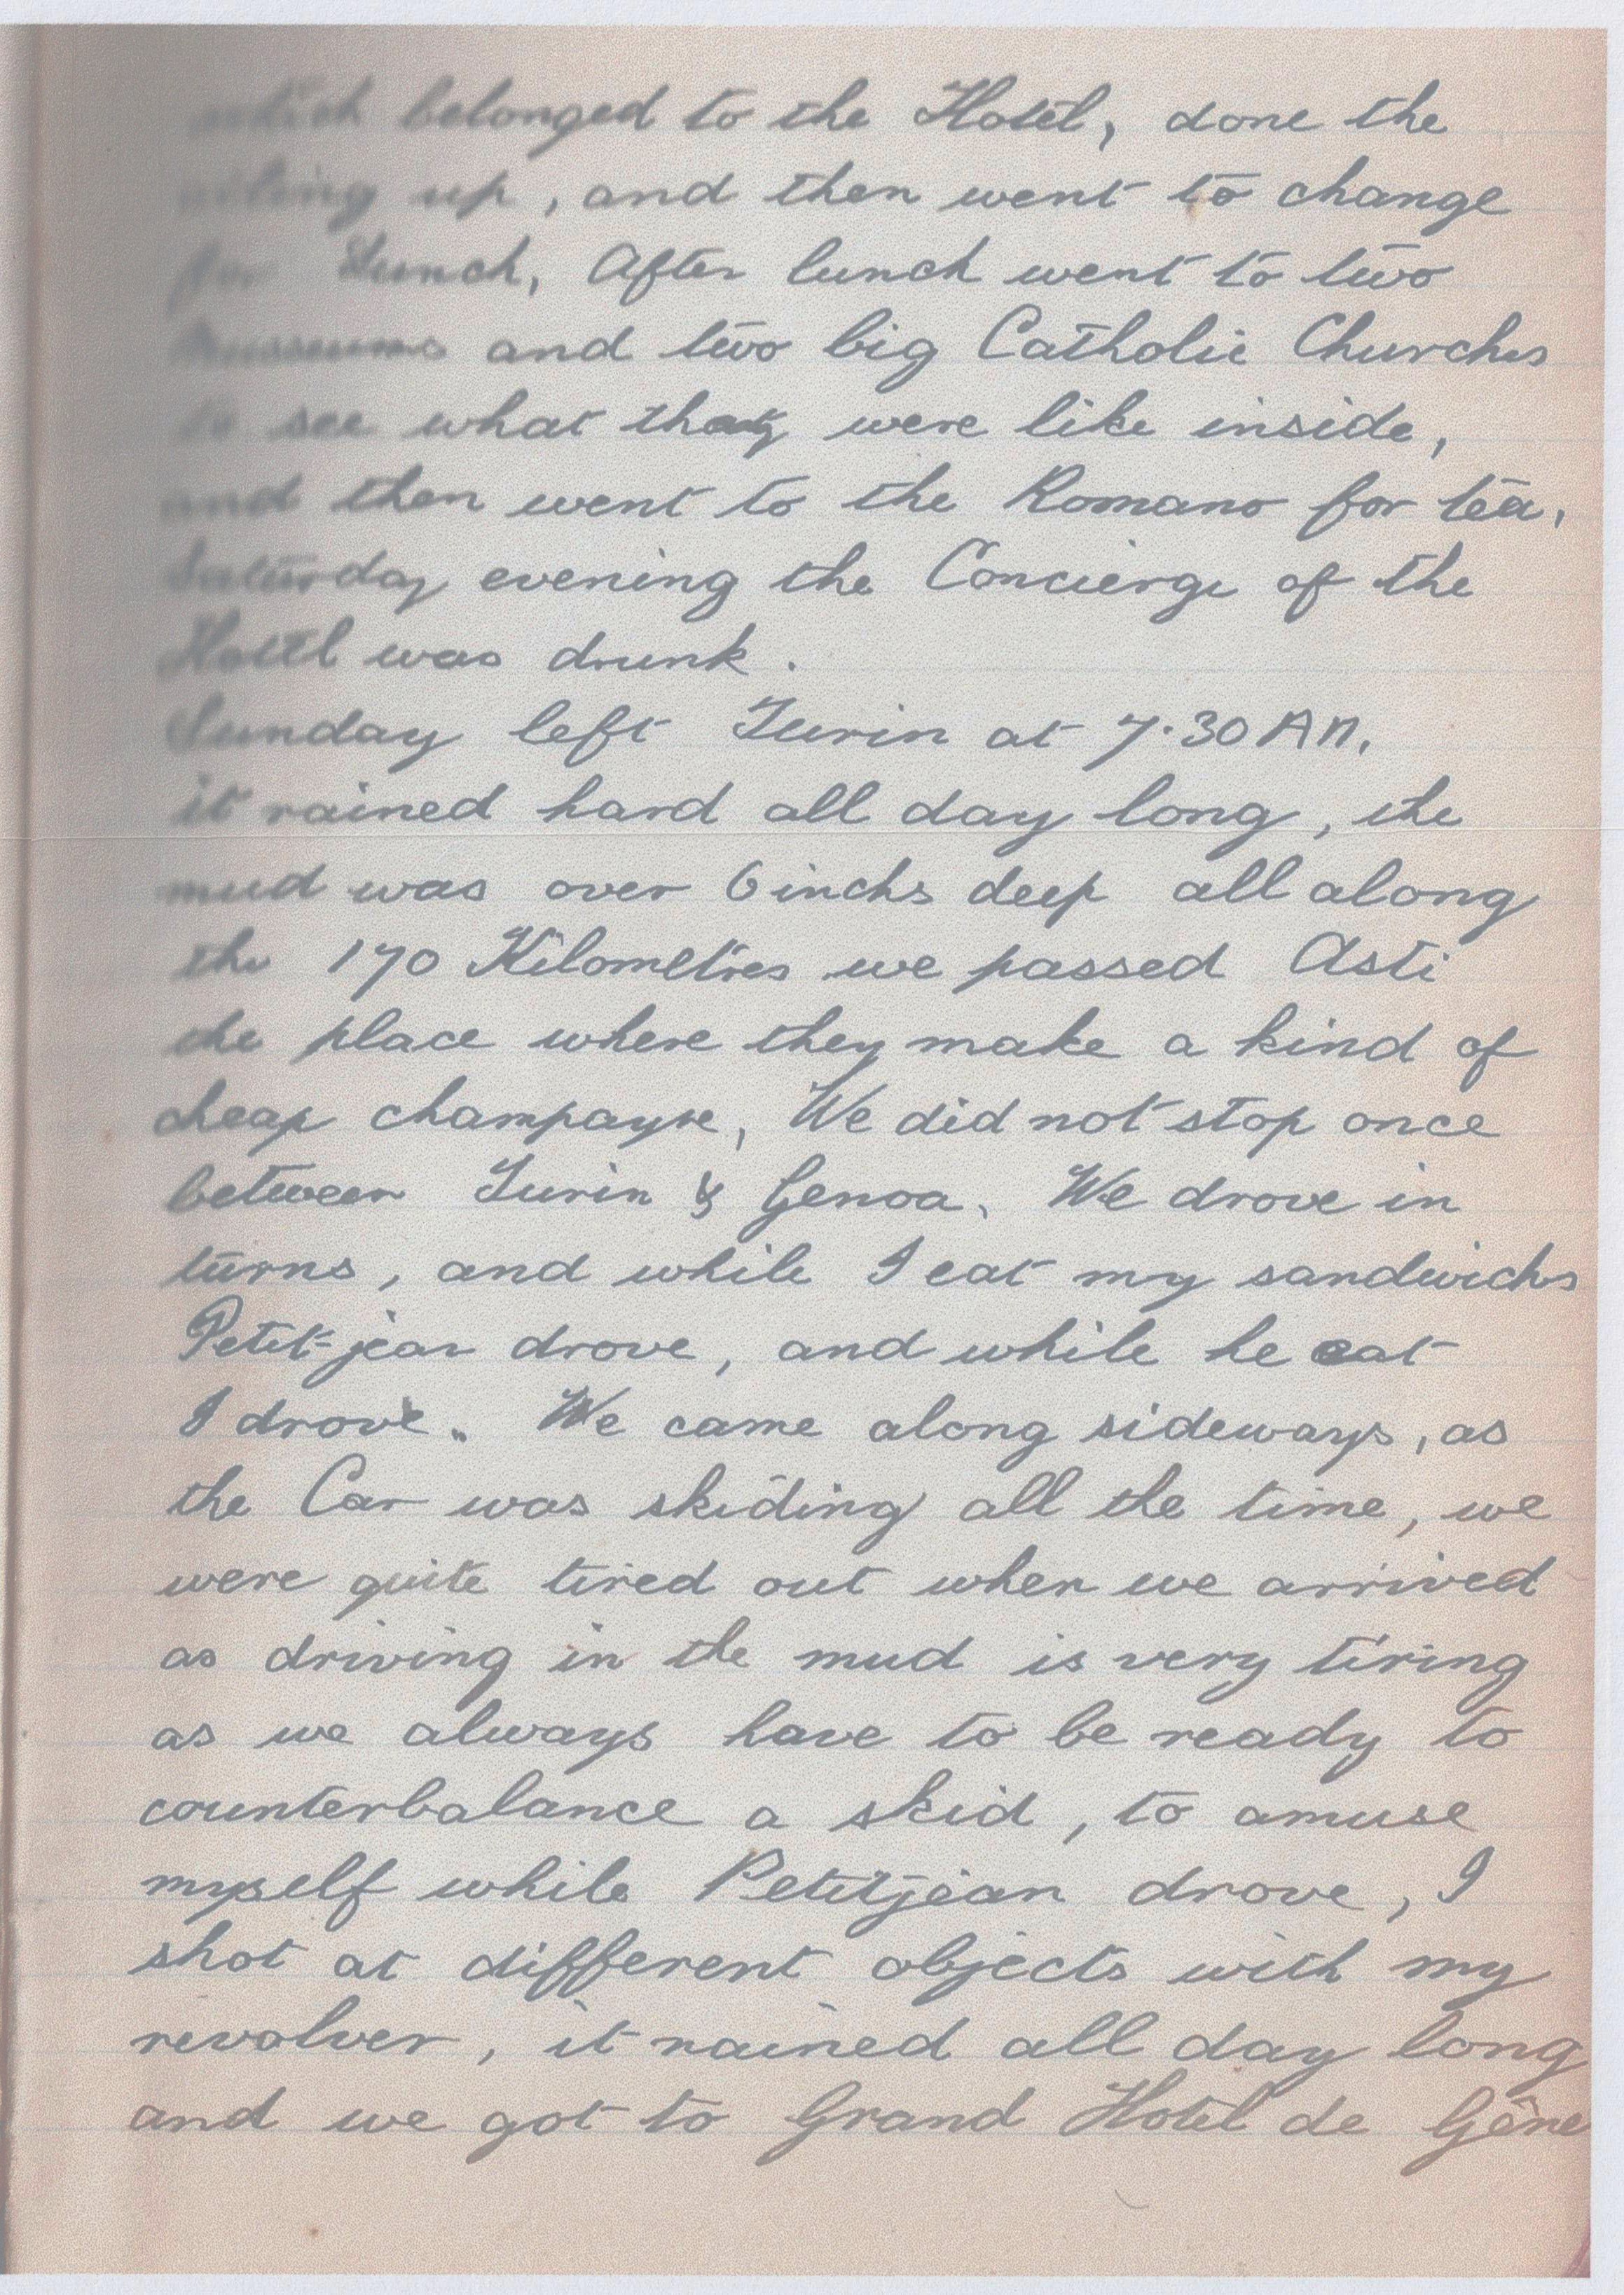 which belonged to the Hotel, done the
oiling up, and then went to change
for Lunch, After lunch went to two
Musseums and two big Catholic Churchs
to see what they were like inside,
and then went to the Romano for tea,
Saturday evening the Concierge of the
Hotel was drunk.
Sunday left Turin at 7.30 AM.
it rained hard all day long, the
mud was over 6 inchs deep all along
the 170 Kilometres we passed Asti
the place where they make a kind of
cheap champayne, We did not stop once
between Turin & Genoa. We drove in
turns, and while I eat my sandwichs
Petit-jean drove, and while he eat
I drove. We came along sideways, as
the Car was skiding all the time, we
were quite tired out when we arrived
as driving in the mud is very tiring
as we always have to be ready to
counterbalance a skid, to amuse
myself while Petitjean drove, I
shot at different objects with my
revolver, it rained all day long
and we got to Grand Hotel de Gêne